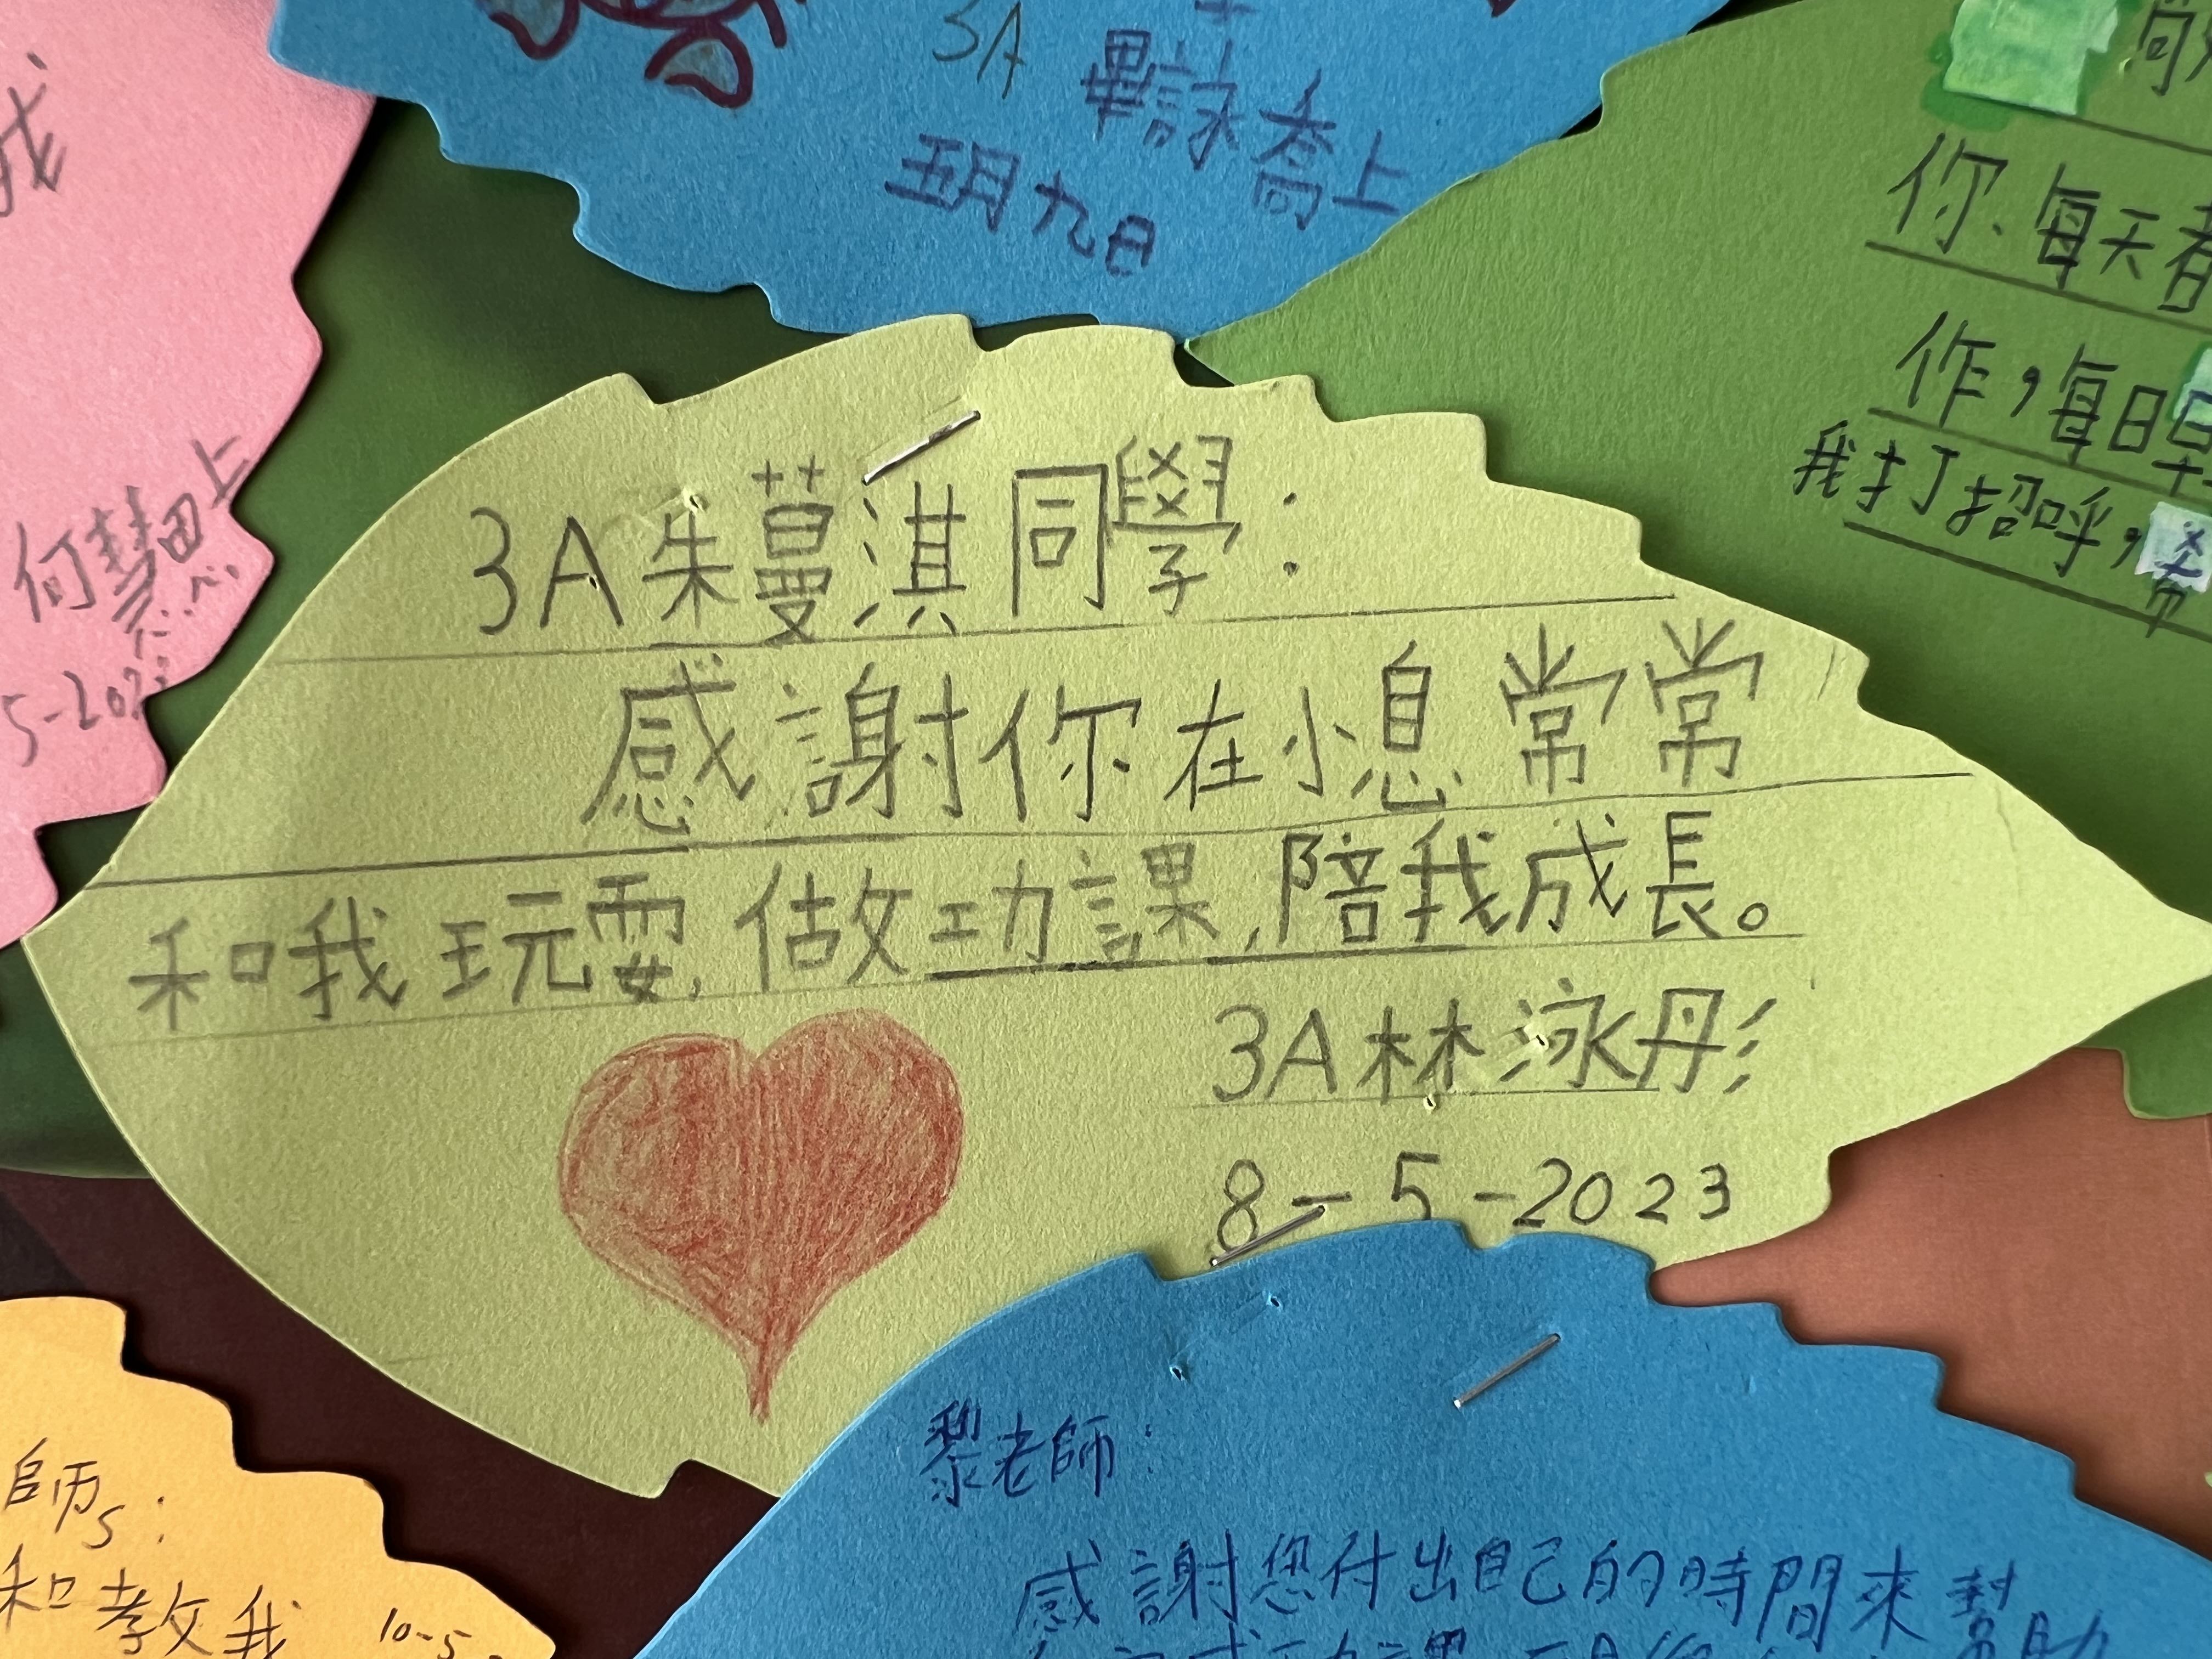 3A
畢詠喬上
五月九日
我
何慧恩上
你每天都
作，每日早
我打招呼，希
3A朱蔓淇同學：
感謝你在小息常常
和我玩耍,做功課,陪我成長。
3A林泳彤
8-5-2023
黎老師：
感謝您付出自己的時間來幫助
師：
和教我
10-5